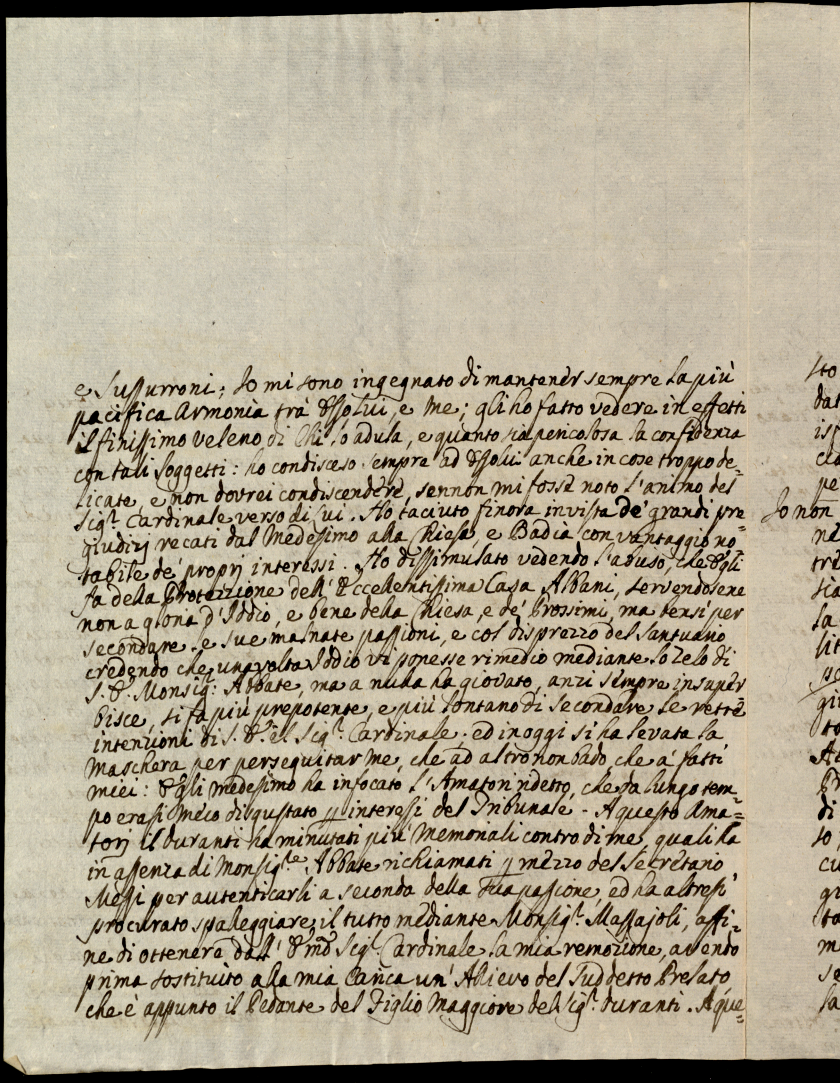 e Sussurroni; Io mi sono ingegnato di mantener sempre la più
pacifica Armonia trà Essolui, e me; gli ho fatto vedere in effetti
il finissimo veleno di Chi lo adula, e quanto sia pericolosa la confidenza
con tali soggetti: ho condisceso sempre ad Essolui anche in cose troppo de=
licate, e non dovrei condiscendere, sennon mi fosse noto l'animo del
Sig.r Cardinale verso di Lui. Ho taciuto finora in vista de' grandi pre=
giudizj recati dal Medesimo alla Chiesa, e Badia con vantaggio no=
tabile de' proprj interessi. Ho dissimulato vedendo l'abuso, che Egli
fa della Protezzione dell'Eccellentissima Casa Albani, servendosene
non a gloria d'Iddio, e bene della Chiesa, e de' Prossimi, ma bensì per
secondare le sue malnate passioni, e col disprezzo del Santuario
credendo che una volta Iddio vi ponesse rimedio mediante lo zelo di
S. E. Monsig.r Abbate, ma a nulla ha giovato, anzi sempre insuper
bisce, si fa più prepotente, e più lontano di secondare le rette
intenzioni di S. E. e'l Sig.r Cardinale. ed in oggi si ha levata la
Maschera per perseguitar me, che ad altro non bado, che a' fatti
miei: Egli medesimo ha infocato l'Amatori ridetto, che da lungo tem=
po erasi meco disgustato p interessi del Tribunale. A questo Ama=
torj il Duranti ha minutati più Memoriali contro di me, quali ha
in assenza di Monsig.re Abbate richiamati p mezzo del Secretario
Meggi per autenticarli a seconda della sua passione, ed ha altresi'
procurato spalleggiare il tutto mediante Monsig.r Massajoli, affi=
ne di ottenere dall' Emo Sig.r Cardinale la mia remozione, avendo
prima sostituito alla mia Carica un' Allievo del Suddetto Prelato
che è appunto il Pedante del Figlio Maggiore del Sig.r Duranti. A que=
Io non